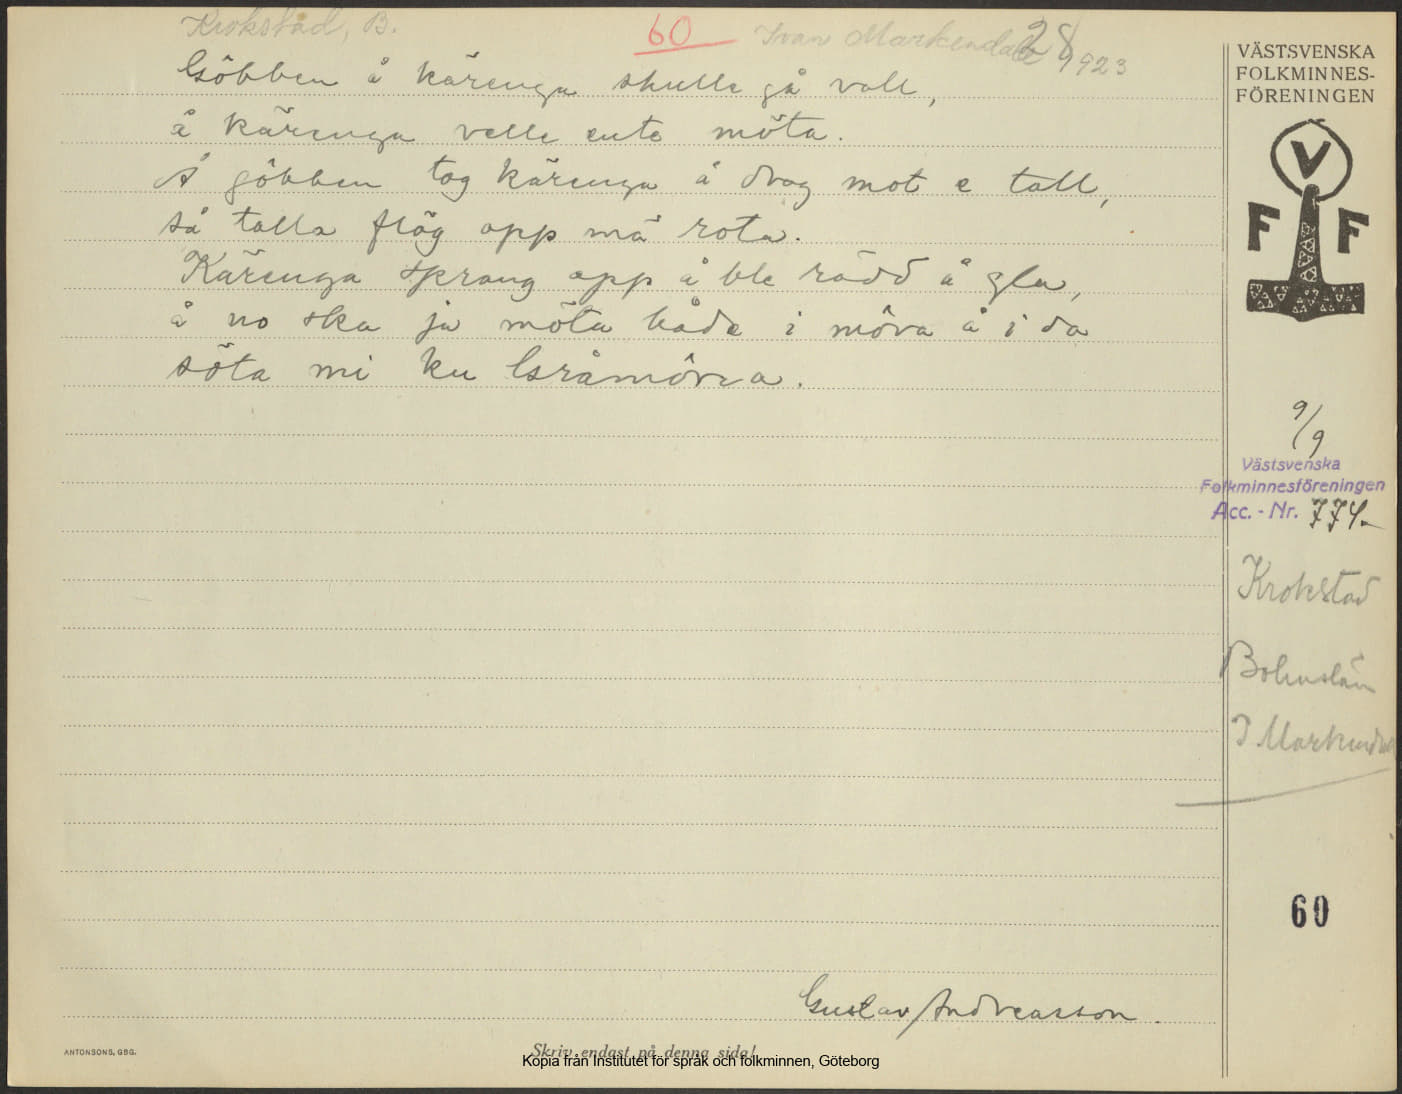 Krokstad, B.
60
Ivar Markendahl 28/ 1923
Göbben å käringa skulle gå vall,
å käringa velle ente möta.
Å göbben tog käringa å drog mot e tall,
så talla flög opp mä rota.
Käringa sprang opp å ble rädd å gla,
å no ska ja möta både i môra å i da
söta mi ku Gråmôra.
Gustav Andreasson.
Skriv endast på denna sida!
ANTONSONS, GBG.
Kopia från Institutet för språk och folkminnen, Göteborg
VÄSTSVENSKA
FOLKMINNES-
FÖRENINGEN
V
F F
9/9
Västsvenska
Folkminnesföreningen
Acc. - Nr. 774.
Krokstad
Bohuslän
I Markendahl
60